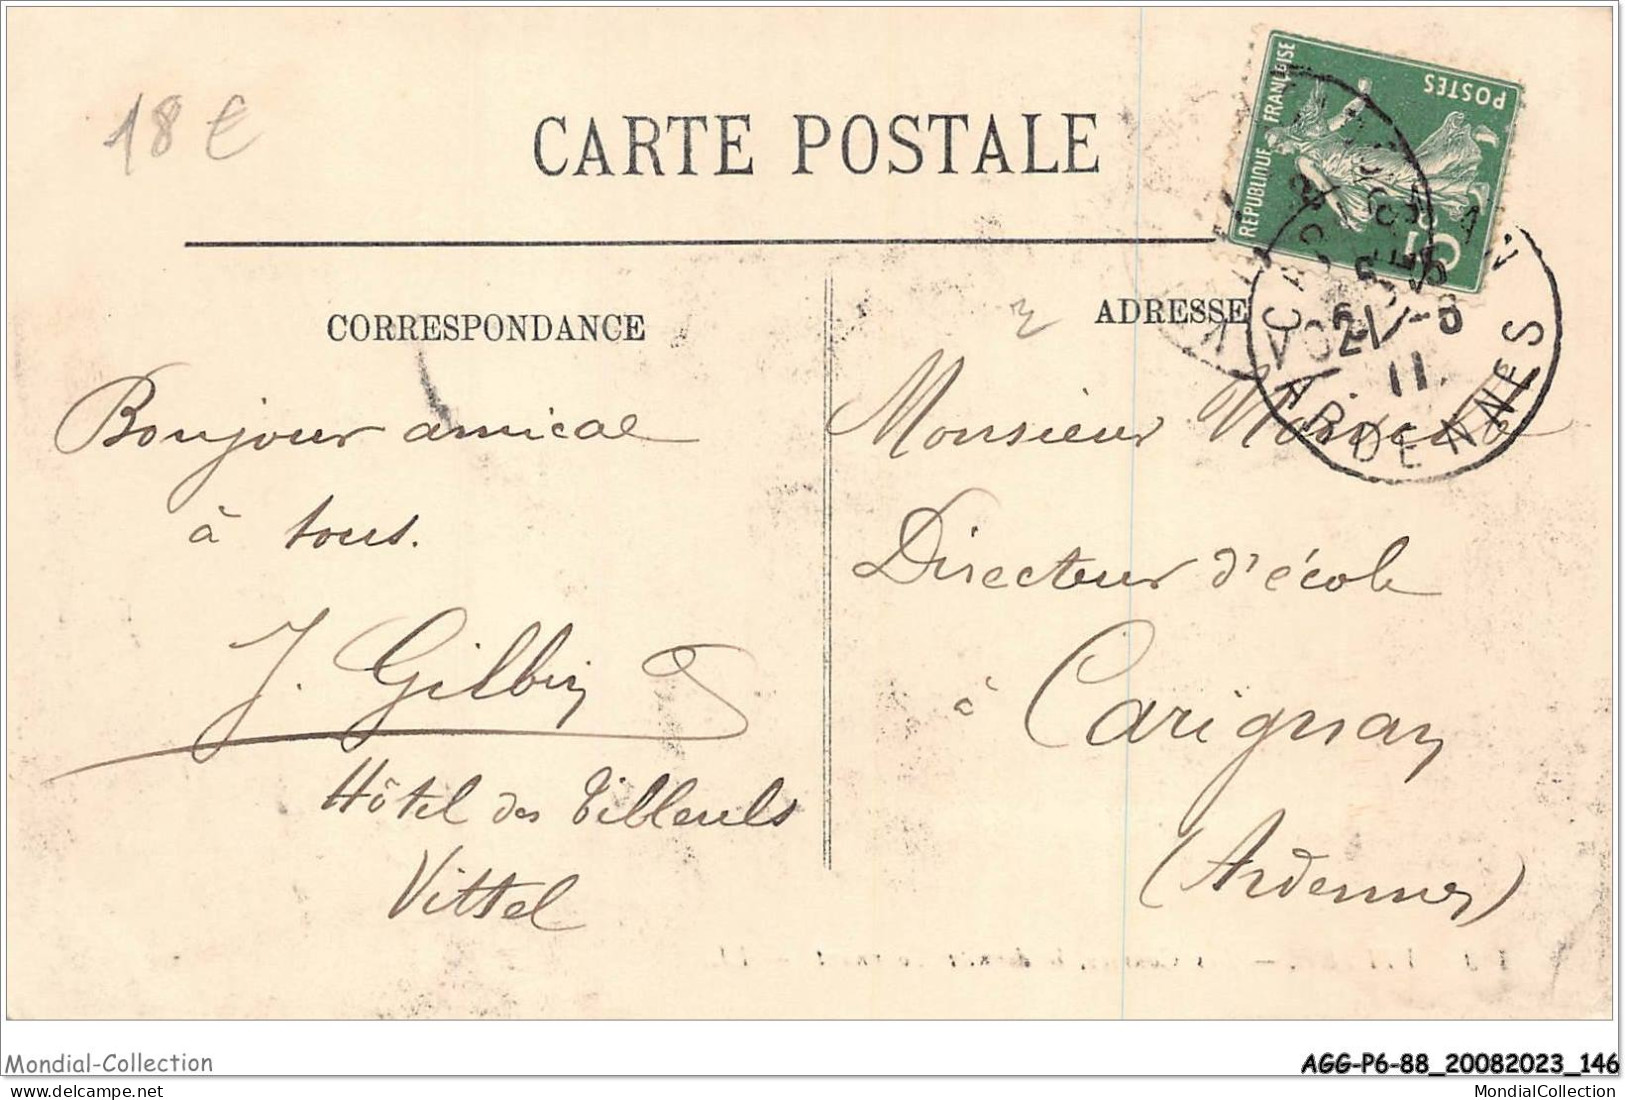 18 €
CARTE POSTALE
RÉPUBLIQUE FRANÇAISE
POSTES
5c
CORRESPONDANCE
ADRESSE
21 -8
11
ARDENNES
Bonjour amical
à tous.
J. Gilbin
Hôtel des Tilleuls
Vittel
Monsieur
Directeur d'école
à Carignan
(Ardennes)
Mondial-Collection
AGG-P6-88_20082023_146
MondialCollection